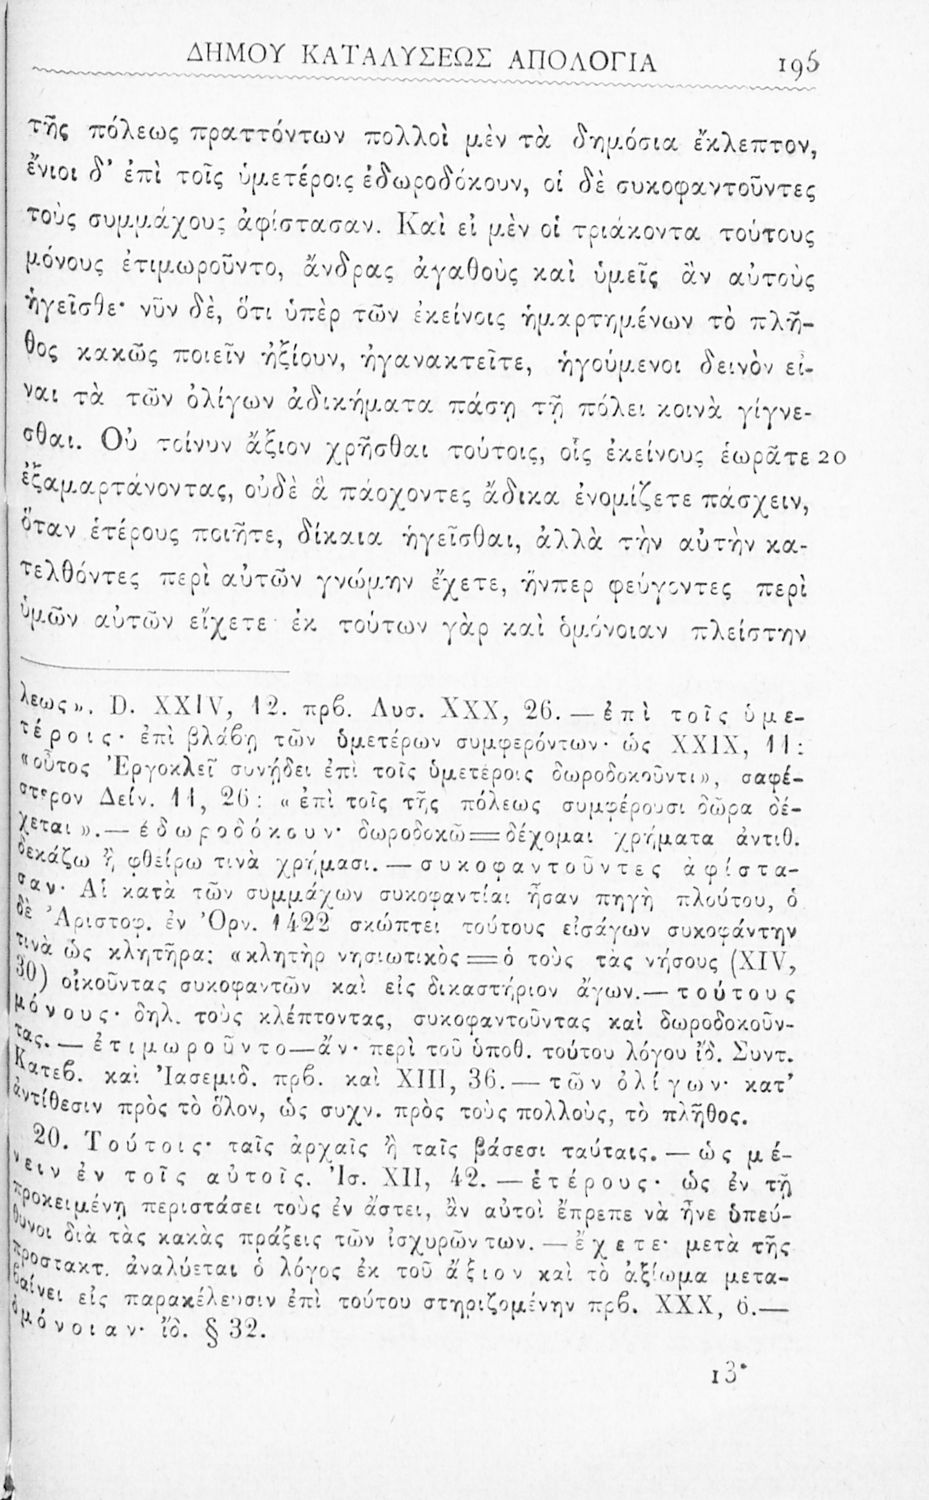 ΔΗΜΟΥ ΚΑΤΑΛΥΣΕΩΣ ΑΠΟΛΟΓΙΑ 195
τῆς πόλεως πραττόντων πολλοὶ μὲν τὰ δημόσια ἔκλεπτον,
ἔνιοι δ' ἐπὶ τοῖς ὑμετέροις ἐδωροδόκουν, οἱ δὲ συκοφαντοῦντες
τοὺς συμμάχους ἀφίστασαν. Καὶ εἰ μὲν οἱ τριάκοντα τούτους
μόνους ἐτιμωροῦντο, ἄνδρας ἀγαθοὺς καὶ ὑμεῖς ἂν αὐτοὺς
ἡγεῖσθε· νῦν δὲ, ὅτι ὑπὲρ τῶν ἐκείνοις ἡμαρτημένων τὸ πλῆ-
θος κακῶς ποιεῖν ἠξίουν, ἠγανακτεῖτε, ἡγούμενοι δεινὸν εἶ-
ναι τὰ τῶν ὀλίγων ἀδικήματα πάσῃ τῇ πόλει κοινὰ γίγνε-
σθαι. Οὐ τοίνυν ἄξιον χρῆσθαι τούτοις, οἷς ἐκείνους ἑωρᾶτε 20
ἐξαμαρτάνοντας, οὐδὲ ἃ πάσχοντες ἄδικα ἐνομίζετε πάσχειν,
ὅταν ἑτέρους ποιῆτε, δίκαια ἡγεῖσθαι, ἀλλὰ τὴν αὐτὴν κα-
τελθόντες περὶ αὐτῶν γνώμην ἔχετε, ἥνπερ φεύγοντες περὶ
ὑμῶν αὐτῶν εἴχετε· ἐκ τούτων γὰρ καὶ ὁμόνοιαν πλείστην
λεως». D. XXIV, 12. πρβ. Λυσ. XXX, 26. — ἐπὶ τοῖς ὑμε-
τέροις· ἐπὶ βλάβῃ τῶν ὑμετέρων συμφερόντων· ὡς XXIX, 11:
«οὗτος Ἐργοκλεῖ συνῄδει ἐπὶ τοῖς ὑμετέροις δωροδοκοῦντι», σαφέ-
στερον Δείν. 11, 26: «ἐπὶ τοῖς τῆς πόλεως συμφέρουσι δῶρα δέ-
χεται».— ἐδωροδόκουν· δωροδοκῶ=δέχομαι χρήματα ἀντιθ.
δεκάζω ἢ φθείρω τινὰ χρήμασι. — συκοφαντοῦντες ἀφίστα-
σαν· Αἱ κατὰ τῶν συμμάχων συκοφαντίαι ἦσαν πηγὴ πλούτου, ὁ
δὲ Ἀριστοφ. ἐν Ὀρν. 1422 σκώπτει τούτους εἰσάγων συκοφάντην
τινὰ ὡς κλητῆρα; «κλητὴρ νησιωτικὸς=ὁ τοὺς τὰς νήσους (XIV,
30) οἰκοῦντας συκοφαντῶν καὶ εἰς δικαστήριον ἄγων.— τούτους
μόνους· δηλ. τοὺς κλέπτοντας, συκοφαντοῦντας καὶ δωροδοκοῦν-
τας. — ἐτιμωροῦντο—ἄν· περὶ τοῦ ὑποθ. τούτου λόγου ἴδ. Συντ.
Κατεβ. καὶ Ἰασεμιδ. πρβ. καὶ XIII, 36. — τῶν ὀλίγων· κατ'
ἀντίθεσιν πρὸς τὸ ὅλον, ὡς συχν. πρὸς τοὺς πολλοὺς, τὸ πλῆθος.
20. Τούτοις· ταῖς ἀρχαῖς ἢ ταῖς βάσεσι ταύταις. — ὡς μέ-
νειν ἐν τοῖς αὐτοῖς. Ἰσ. XII, 42. — ἑτέρους· ὡς ἐν τῇ
προκειμένῃ περιστάσει τοὺς ἐν ἄστει, ἂν αὐτοὶ ἔπρεπε νὰ ἦνε ὑπεύ-
θυνοι διὰ τὰς κακὰς πράξεις τῶν ἰσχυρῶν των. — ἔχετε· μετὰ τῆς
προστακτ. ἀναλύεται ὁ λόγος ἐκ τοῦ ἄξιον καὶ τὸ ἀξίωμα μετα-
βαίνει εἰς παρακέλευσιν ἐπὶ τούτου στηριζομένην πρβ. XXX, 6.—
ὁμόνοιαν· ἴδ. § 32.
13*